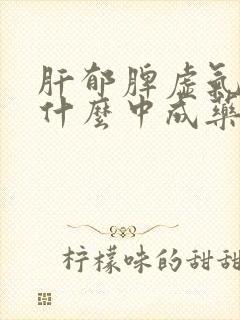 肝郁脾虚氣
什麼中成藥
柠檬味的甜甜